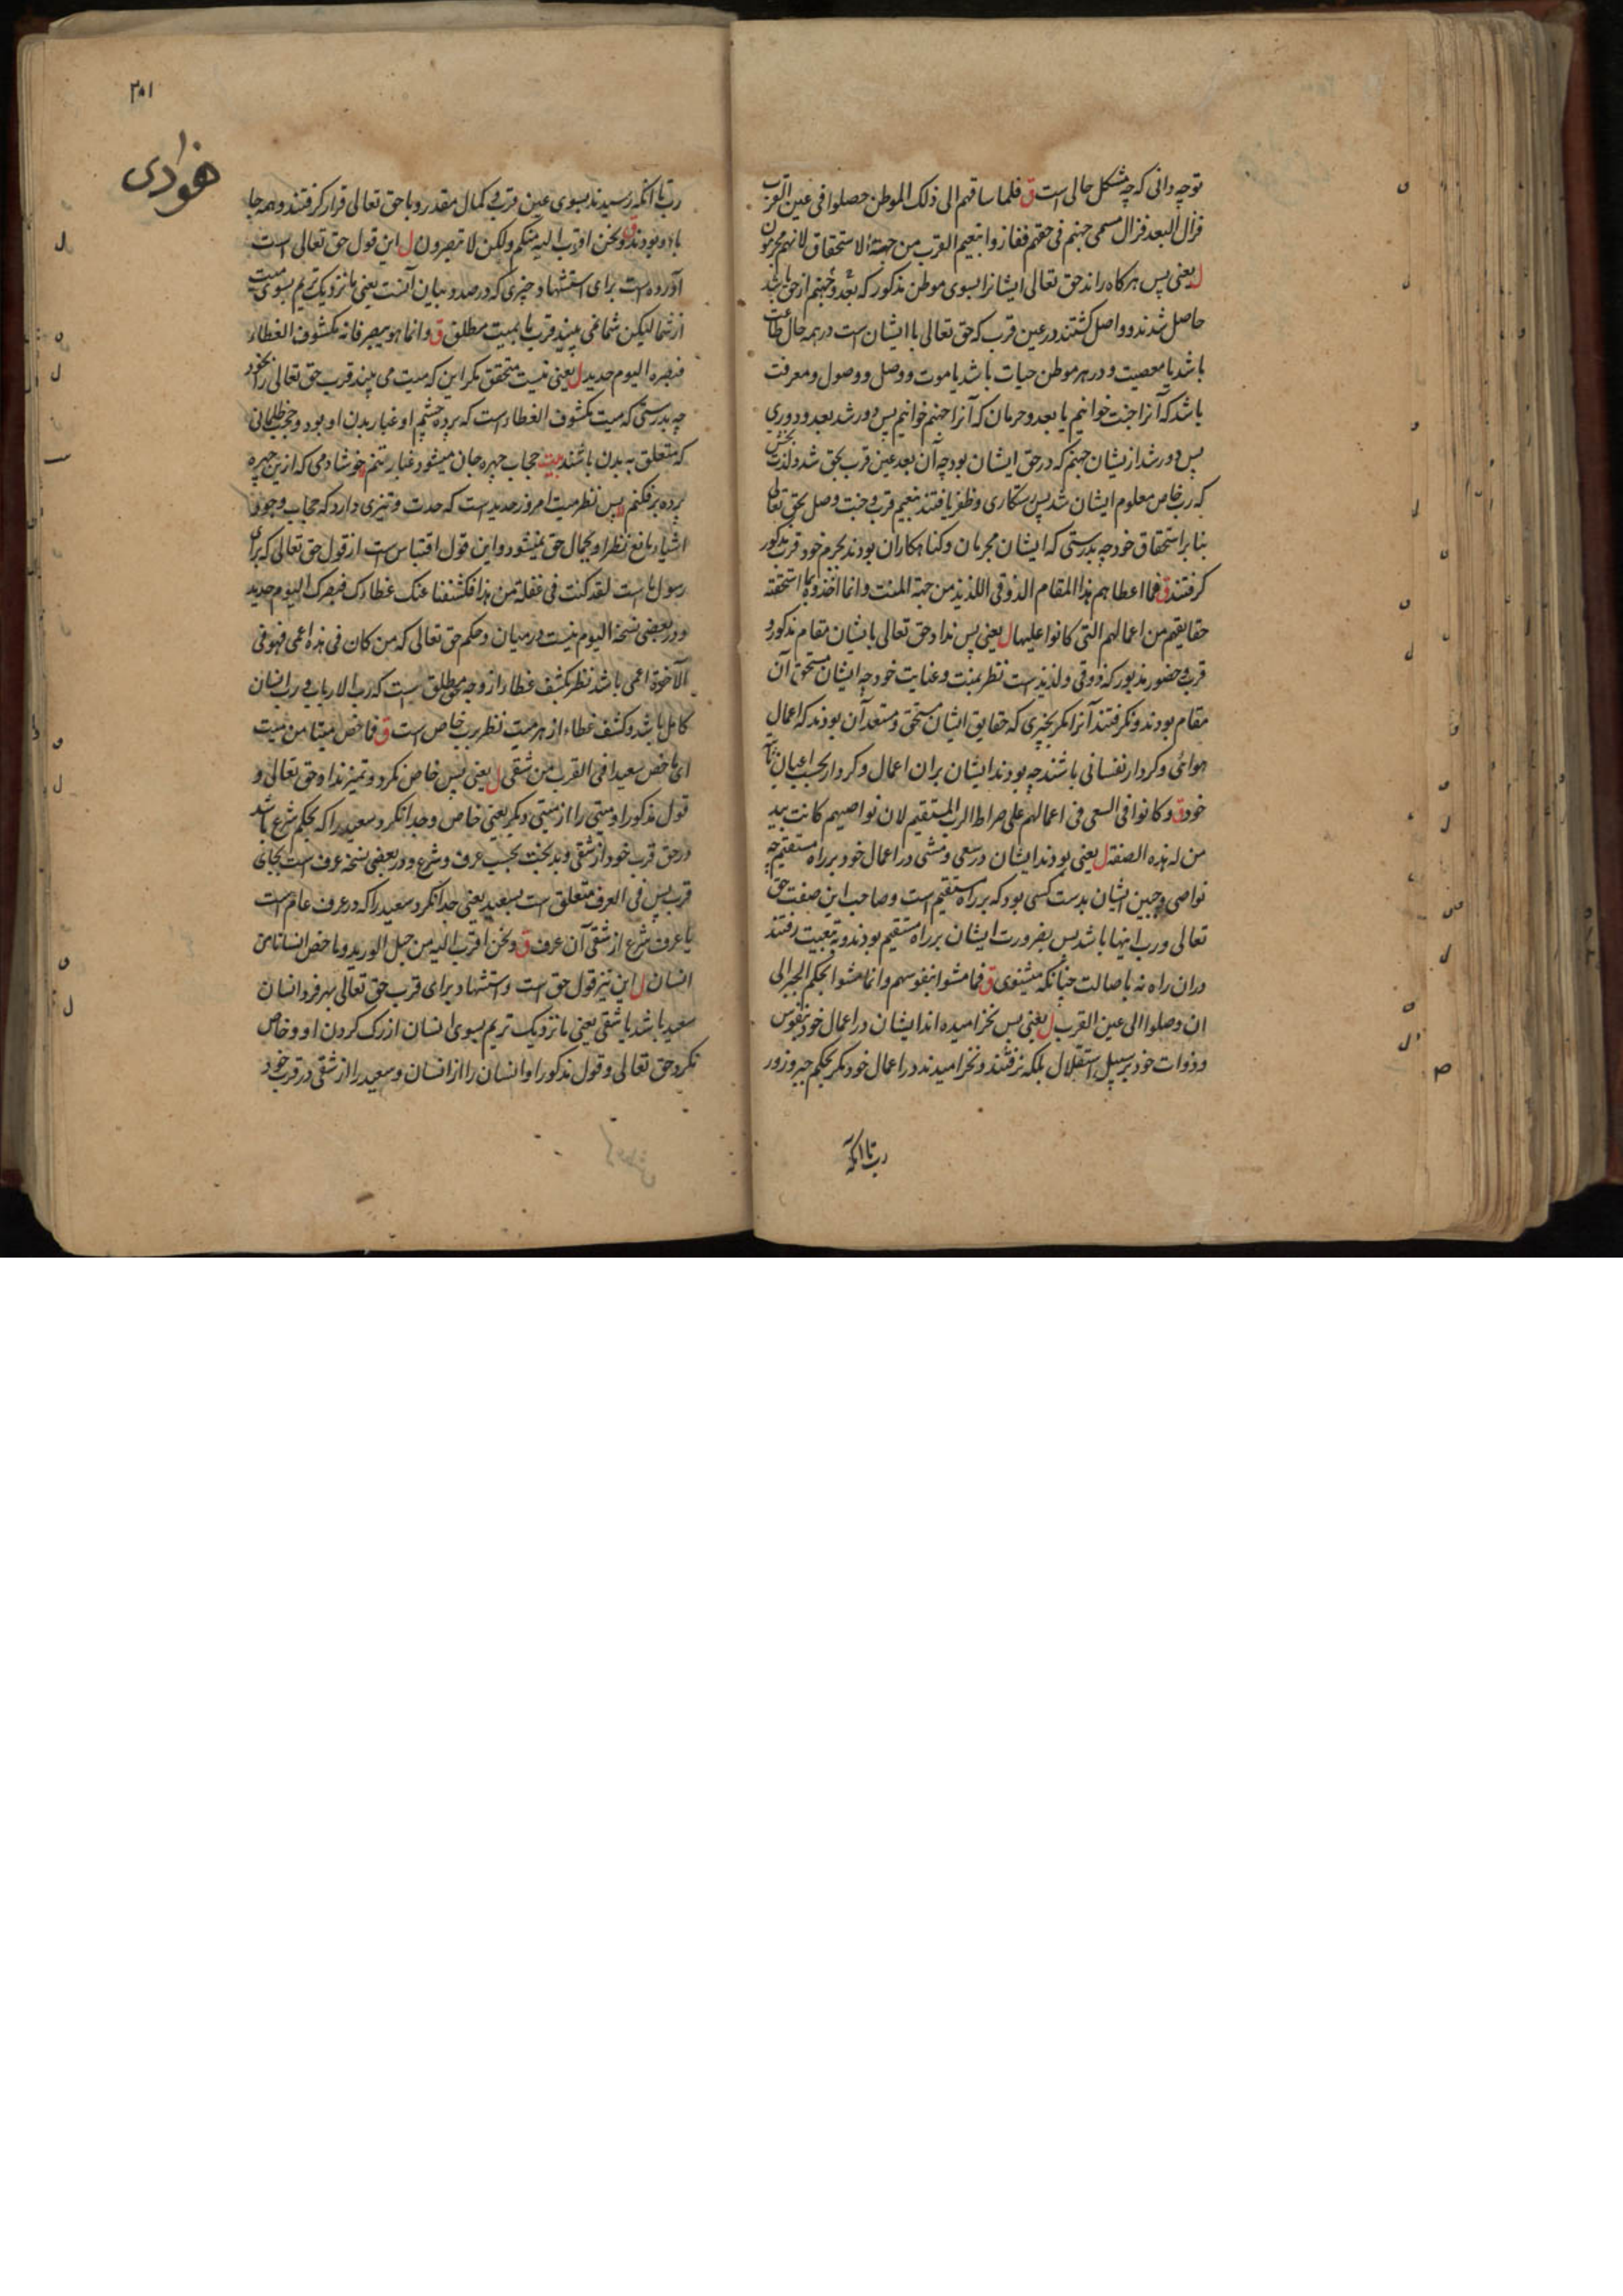 توچه دانی که چه مشکل حالی است ق فلما ساقهم الی ذلک الموطن حصلوا فی عین القرب
فزال البعد فزال مسمی جهنم فی حقهم ففازوا بنعیم القرب من جهة الاستحقاق لانهم مجرمون
ل یعنی پس هرکاه راند حق تعالی ایشانرا بسوی موطن مذکور که بعد و جهنم از حق باشد
حاصل شدند و واصل کشتند در عین قرب که حق تعالی با ایشان است در همه حال طاعت
باشد یا معصیت و در هر موطن حیات باشد یا موت و وصل و وصول و معرفت
باشد که آنرا جنت خوانیم یا بعد و حرمان که آنرا جهنم خوانیم پس دور شد بعد و دوری
پس دور شد از یشان جهنم که در حق ایشان بود چه آن بعد عین قرب بحق شد و لذت بخش
که رب خاص معلوم ایشان شد پس رستکاری و ظفر یافتند بنعیم قرب و جنت وصل بحق تعالی
بنا بر استحقاق خود چه بدرستی که ایشان مجرمان و کناهکاران بودند بجرم خود قرب مذکور
کرفتند ق فما اعطاهم هذا المقام الذوقی اللذیذ من جهة المنت و انما اخذوه بما استحقته
حقایقهم من اعمالهم التی کانوا علیها ل یعنی پس نداد حق تعالی بایشان مقام مذکور و
قرب و حضور مذبور که ذوقی و لذیذ است نظر بمنت و عنایت خود چه ایشان مستحق آن
مقام بودند و نکرفتند آنرا مکر بچیزی که حقایق ایشان مستحق و مستعد آن بودند که اعمال
هوائی و کردار نفسانی باشند چه بودند ایشان بران اعمال و کردار بحسب اعیان ثابته
خود ق و کانوا فی السعی فی اعمالهم علی صراط الرب المستقیم لان نواصیهم کانت بید
من له هذه الصفة ل یعنی بودند ایشان در سعی و مشی در اعمال خود بر راه مستقیم چه
نواصی و جبین ایشان بدست کسی بود که بر راه مستقیم است و صاحب این صفت حق
تعالی و رب اینها باشد پس بضرورت ایشان بر راه مستقیم بودند و به تبعیت رفتند
دران راه نه باصالت چنانکه میشنوی ق فما مشوا بنفوسهم و انما مشوا بحکم الجبر الی
ان وصلوا الی عین القرب ل یعنی پس نخرامیده اند ایشان در اعمال خود بنفوس
و ذوات خود بر سبیل استقلال بلکه نرفتند و نخرامیدند در اعمال خود مکر بحکم جبر و زور
رب تا انکه
۲۰۱
رب تا انکه رسیدند بسوی عین قرب و کمال مقدر و با حق تعالی قرار کرفتند و همه جا
با او بودند ق و نحن اقرب الیه منکم و لکن لا تبصرون ل این قول حق تعالی است
آورده است برای استشهاد چیزی که در صدد بیان آنست یعنی ما نزدیک تریم بسوی میت
از شما لیکن شما نمی بینید قرب ما بمیت مطلق ق و انما هو یبصر فانه مکشوف الغطاء
فبصره الیوم حدید ل یعنی نیست متحقق مکر این که میت می بیند قرب حق تعالی را بخود
چه بدرستی که میت مکشوف الغطاء است که پرده چشم او غبار بدن او بود و حجب ظلمانی
که متعلق به بدن باشند بیت حجاب چهره جان میشود غبار تنم خوشا دمی که از ین چهره
پرده برفکنم پس نظر میت امروز حدید است که حدت و تیزی دارد که حجاب وجود
اشیاء مانع نظر او بجمال حق نمیشود و این قول اقتباس است از قول حق تعالی که برای
رسول ما است لقد کنت فی غفلة من هذا فکشفنا عنک غطاءک فبصرک الیوم حدید
و در بعضی نسخه الیوم نیست درمیان و حکم حق تعالی که من کان فی هذه اعمی فهو فی
الآخرة اعمی باشد نظر بکشف غطاء از وجه مطلق است که رب الارباب و رب انسان
کامل باشد و کشف غطاء از هر میت نظر برب خاص است ق فما خص میتا من میت
ای ما خص سعیدا فی القرب من شقی ل یعنی پس خاص نکرد و تمیز نداد حق تعالی و
قول مذکور او میتی را از میتی دیکر یعنی خاص و جدا نکرد سعید را که بحکم شرع باشد
در حق قرب خود از شقی و بدبخت بحسب عرف و شرع و در بعضی نسخه عرف است بجای
قرب پس فی العرف متعلق است بسعید یعنی جدا نکرد سعید را که در عرف عام است
یا عرف شرع از شقی آن عرف ق و نحن اقرب الیه من حبل الورید و ما خص انسانا من
انسان ل این نیز قول حق است و استشهاد برای قرب حق تعالی بهر فرد انسان
سعید باشد یا شقی یعنی ما نزدیک تریم بسوی انسان از رک کردن او و خاص
نکرد حق تعالی و قول مذکور او انسان را از انسان و سعید را از شقی در قرب خود